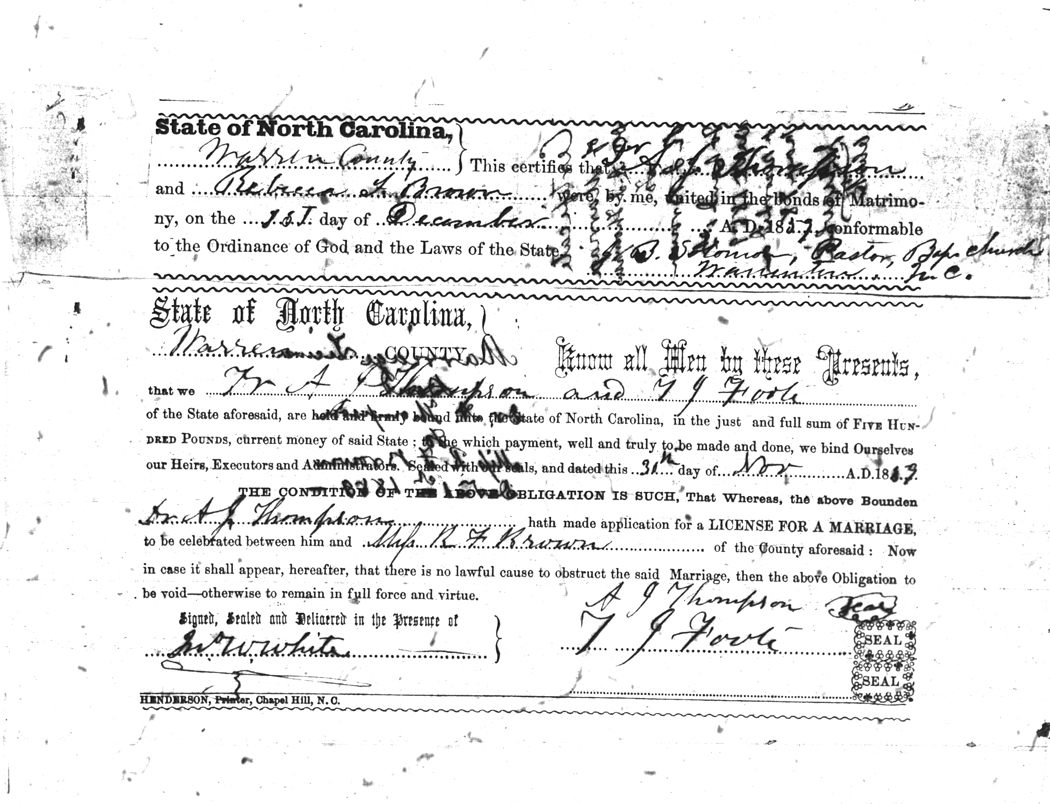 State of North Carolina,
Warren County } This certifies that A. J. Thompson
and Rebecca F. Brown were, by me, united in the bonds of Matrimo-
ny, on the 1st. day of December A. D. 18 conformable
to the Ordinance of God and the Laws of the State. B. Pastor, Bap. Church
N. C.
State of North Carolina,
Warren COUNTY. Know all Men by these Presents,
that we Dr A J Thompson and T J Foote
of the State aforesaid, are held and firmly bound unto the State of North Carolina, in the just and full sum of FIVE HUN-
DRED POUNDS, current money of said State : to the which payment, well and truly to be made and done, we bind Ourselves
our Heirs, Executors and Administrators. Sealed with our seals, and dated this 30th day of Nov A.D. 18
THE CONDITION OF THE ABOVE OBLIGATION IS SUCH, That Whereas, the above Bounden
Dr A J Thompson hath made application for a LICENSE FOR A MARRIAGE,
to be celebrated between him and Miss R F Brown of the County aforesaid : Now
in case it shall appear, hereafter, that there is no lawful cause to obstruct the said Marriage, then the above Obligation to
be void—otherwise to remain in full force and virtue.
A J Thompson Seal
Signed, Sealed and Delivered in the Presence of
T J Foote SEAL
Jno W. White
SEAL
HENDERSON, Printer, Chapel Hill, N. C.